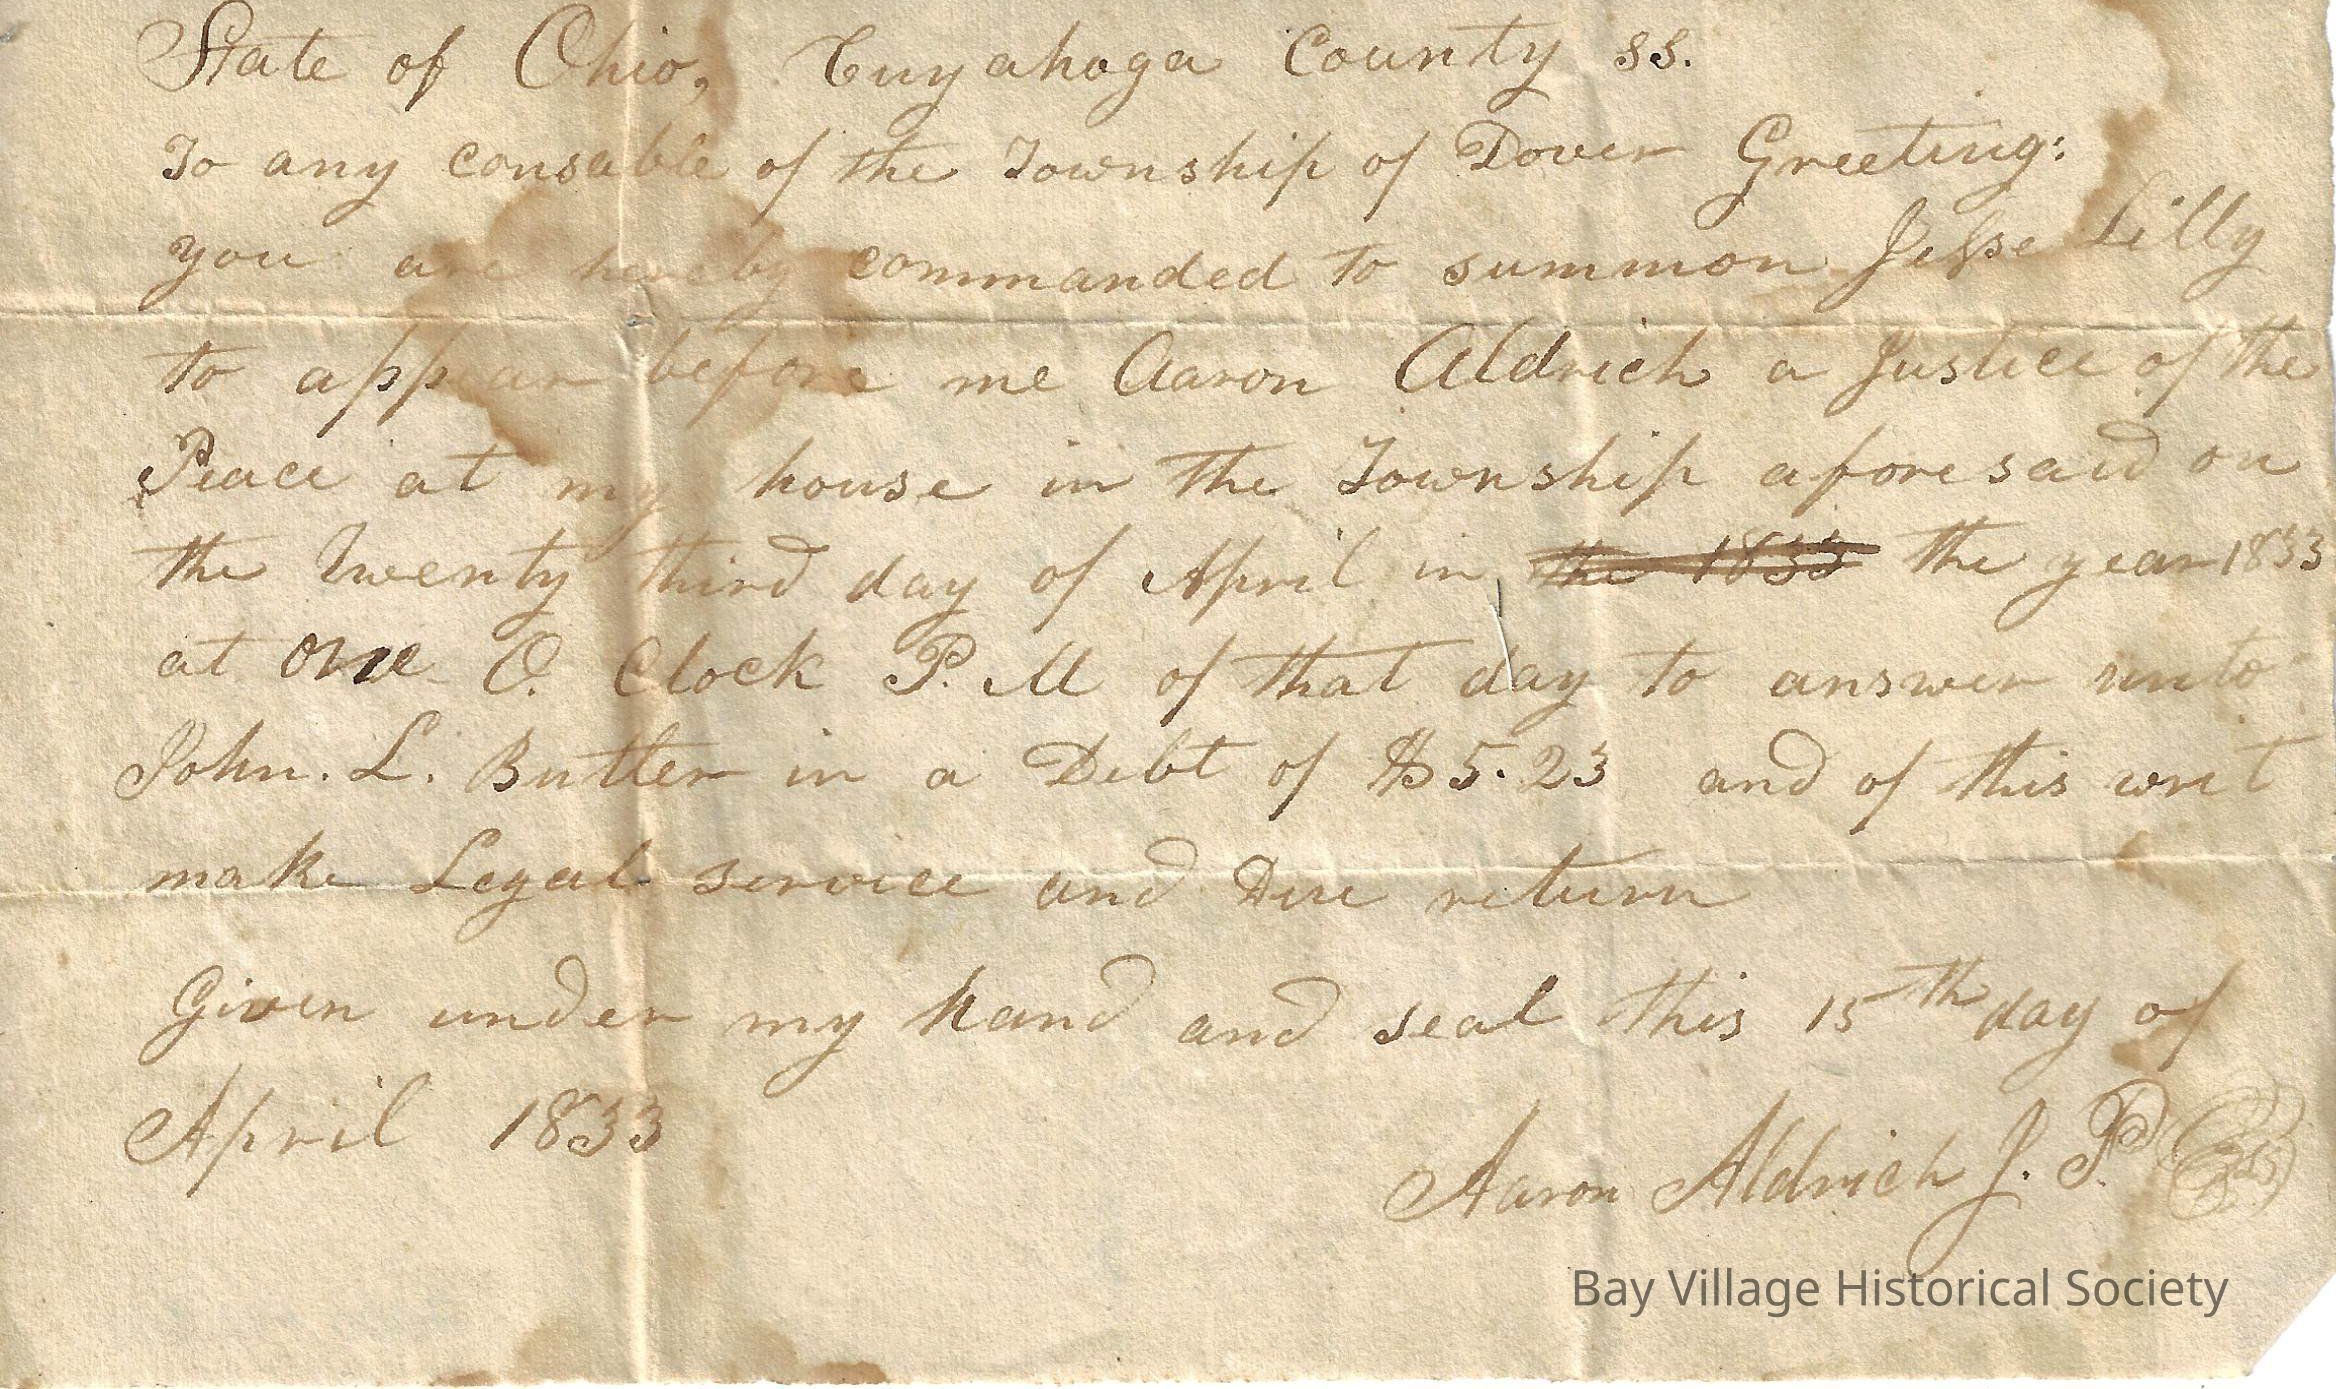 State of Ohio, Cuyahoga County ss.
To any consable of the Township of Dover Greeting:
you are hereby commanded to summon Jesse Lilly
to appear before me Aaron Aldrich a Justice of the
Peace at my house in the Township aforesaid on
the Twenty third day of April in the 1833 the year 1833
at one O. Clock P. M of that day to answer unto
John. L. Butler in a Debt of $5.23 and of this writ
make Legal service and Due return
Given under my hand and seal this 15th day of
April 1833
Aaron Aldrich J. P.
Bay Village Historical Society